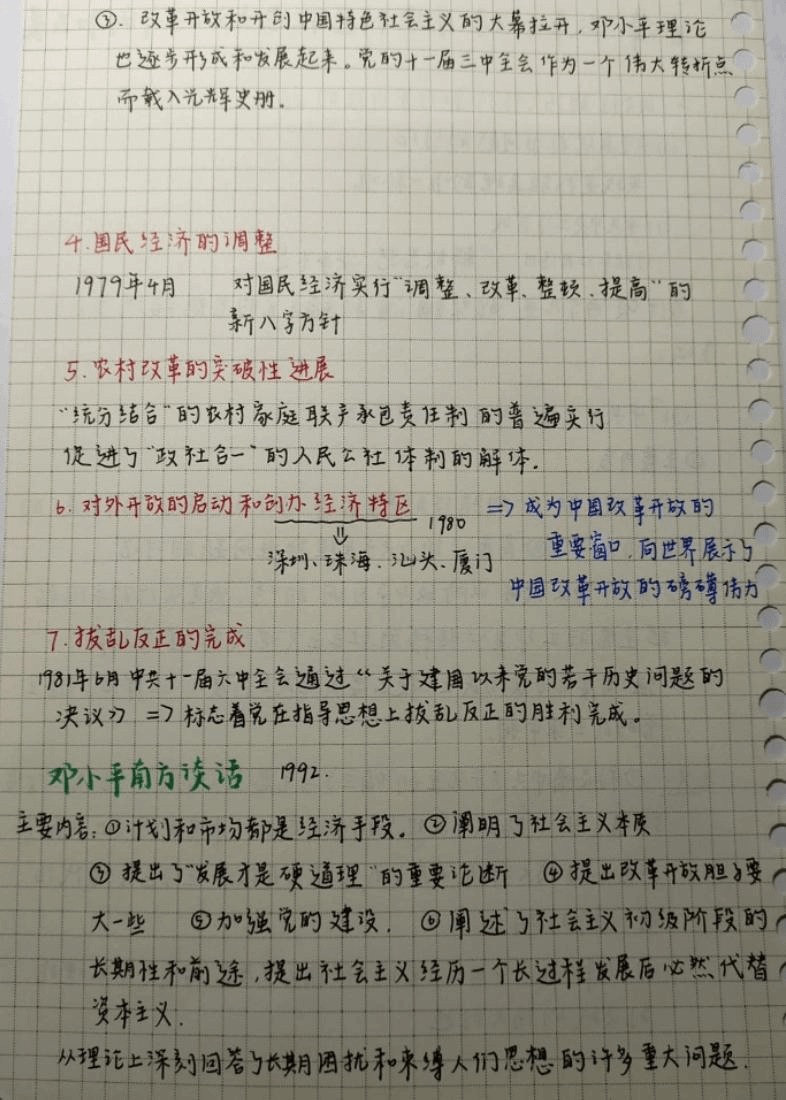 ③. 改革开放和开创中国特色社会主义的大幕拉开，邓小平理论
也逐步形成和发展起来。党的十一届三中全会作为一个伟大转折点
而载入光辉史册。
4.国民经济的调整
1979年4月 对国民经济实行“调整、改革、整顿、提高”的
新八字方针
5.农村改革的突破性进展
“统分结合”的农村家庭联产承包责任制的普遍实行
促进了“政社合一”的人民公社体制的解体.
6.对外开放的启动和创办经济特区 1980 => 成为中国改革开放的
深圳、珠海、汕头、厦门 重要窗口，向世界展示了
中国改革开放的磅礴伟力
7.拨乱反正的完成
1981年6月中共十一届六中全会通过“关于建国以来党的若干历史问题的
决议》 => 标志着党在指导思想上拨乱反正的胜利完成。
邓小平南方谈话 1992.
主要内容：①计划和市场都是经济手段。②阐明了社会主义本质
③提出了“发展才是硬道理”的重要论断 ④提出改革开放胆子要
大一些 ⑤加强党的建设. ⑥阐述了社会主义初级阶段的
长期性和前途，提出社会主义经历一个长过程发展后必然代替
资本主义.
从理论上深刻回答了长期困扰和束缚人们思想的许多重大问题.